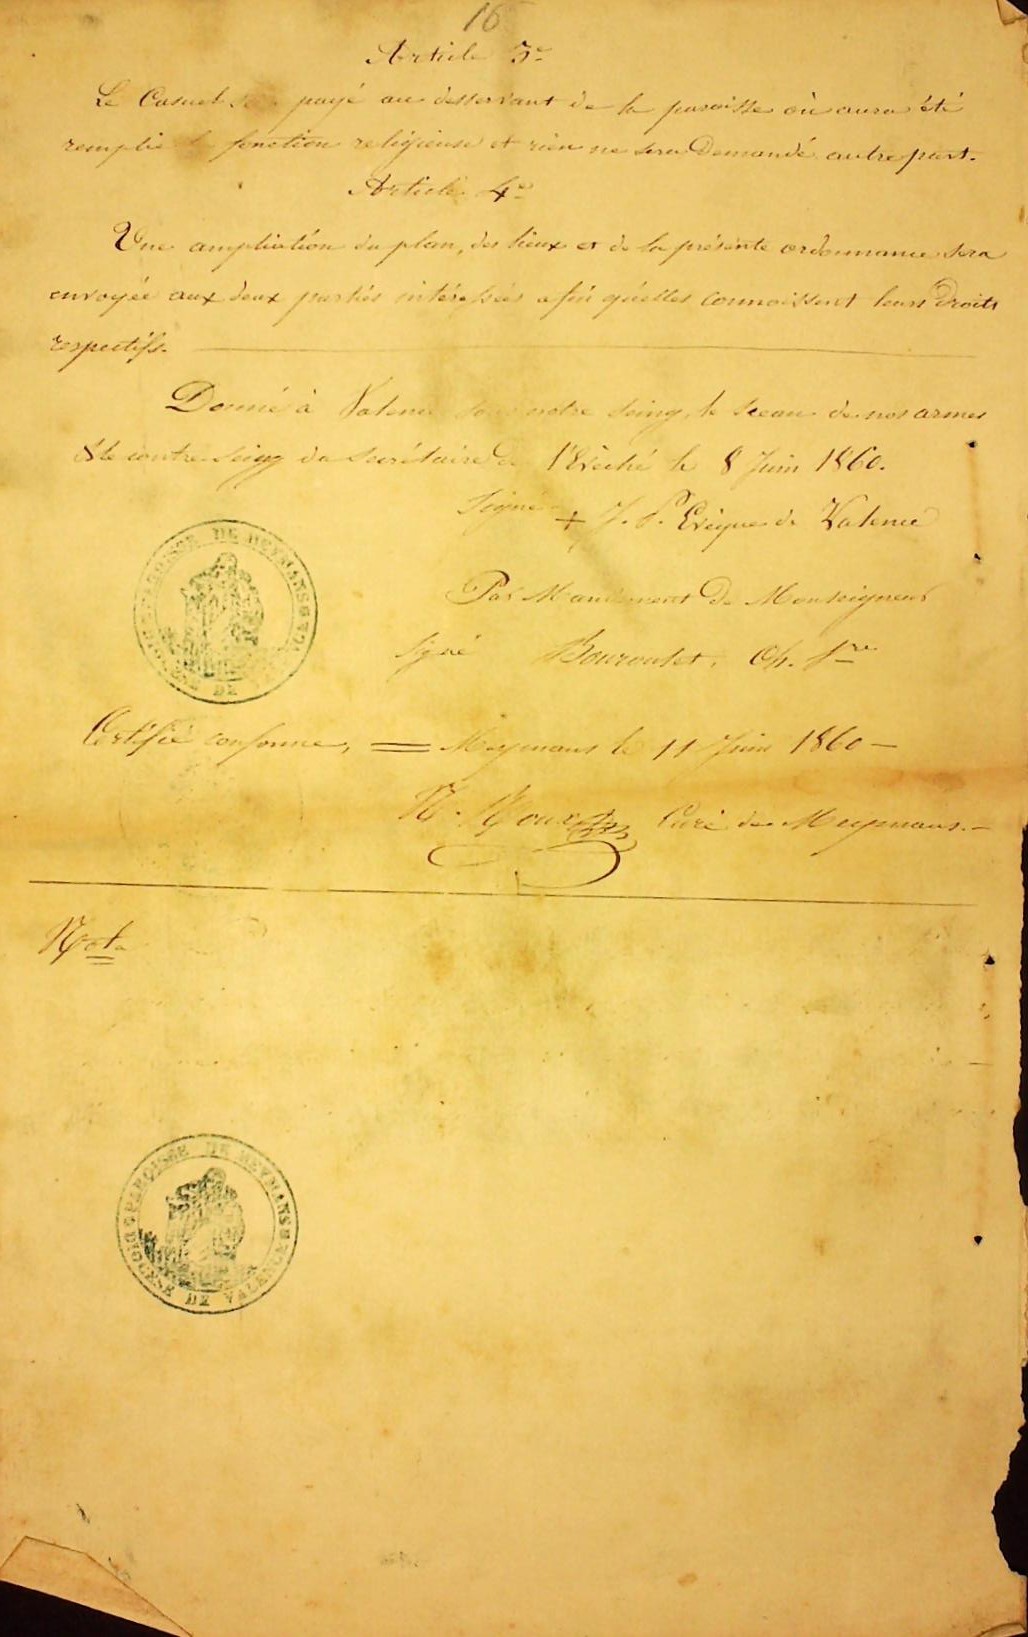 16
Article 3e
Le Casuel sera payé au desservant de la paroisse où aura été
remplie la fonction religieuse et rien ne sera demandé autre part.
Article 4e
Une ampliation du plan, des lieux et de la présente ordonnance sera
envoyée aux deux parties intéressées afin qu'elles connoissent leurs droits
respectifs.
Donné à Valence sous notre seing, le sceau de nos armes
& le contre-seing du secrétaire de l'Evêché le 8 Juin 1860.
Signé + J. P. Evêque de Valence
Par Mandement de Monseigneur
signé Ch. Sre
Certifié conforme, = Meymans le 11 Juin 1860 —
N. Roux Curé de Meymans. —
Nota
PAROISSE DE MEYMANS
DIOCESE DE
PAROISSE DE MEYMANS
DIOCESE DE VALENCE